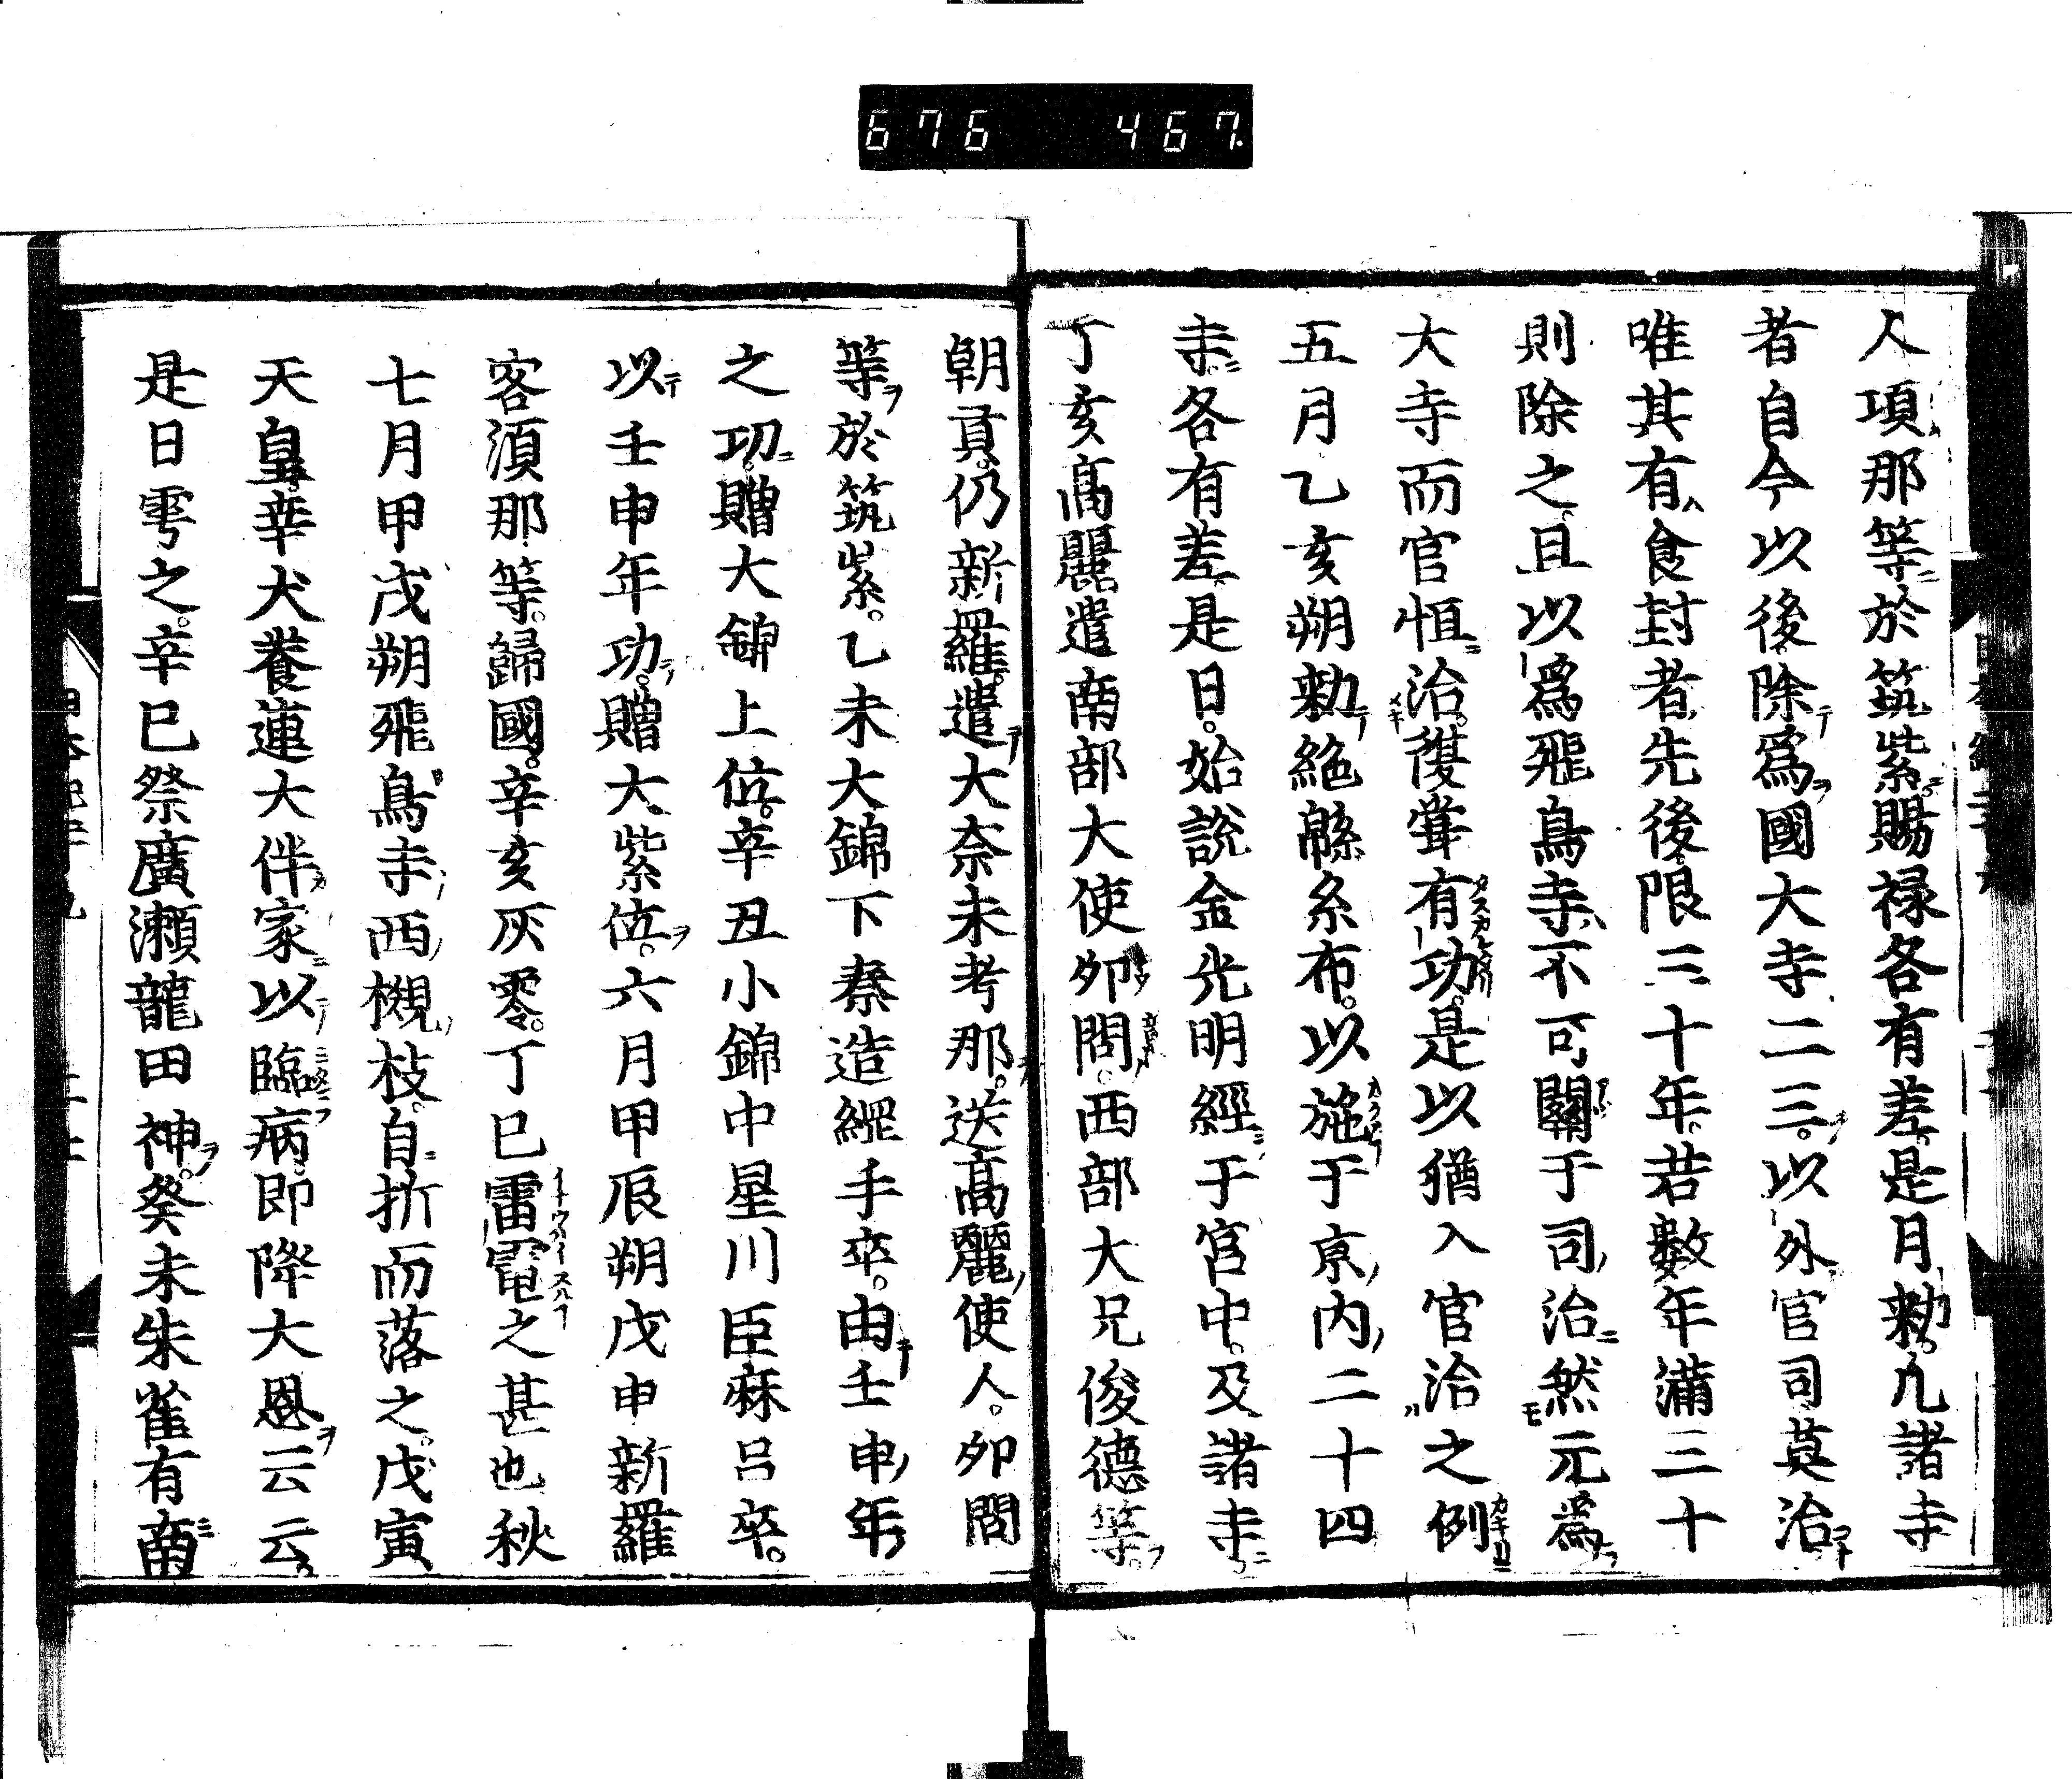 676 467.
人項那等於筑紫賜禄各有差是月勅凡諸寺
者自今以後除爲國大寺二三以外官司莫治
唯其有食封者先後限三十年若數年滿三十
則除之且以爲飛鳥寺不可關于司治然元爲
大寺而官恒治復甞有功是以猶入官治之例
五月乙亥朔勅絁緜糸布以施于京内二十四
寺各有差是日始說金光明經于宮中及諸寺
丁亥高麗遣南部大使卯問西部大兄俊德等
朝貢仍新羅遣大奈末考那送高麗使人卯問
等於筑紫乙未大錦下秦造綱手卒由壬申年
之功贈大錦上位辛丑小錦中星川臣麻呂卒
以壬申年功贈大紫位六月甲辰朔戊申新羅
客項那等歸國辛亥灰零丁巳雷電之甚也秋
七月甲戌朔飛鳥寺西槻枝自折而落之戊寅
天皇幸犬養連大伴家以臨病即降大恩云云
是日雩之辛巳祭廣瀨龍田神癸未朱雀有南